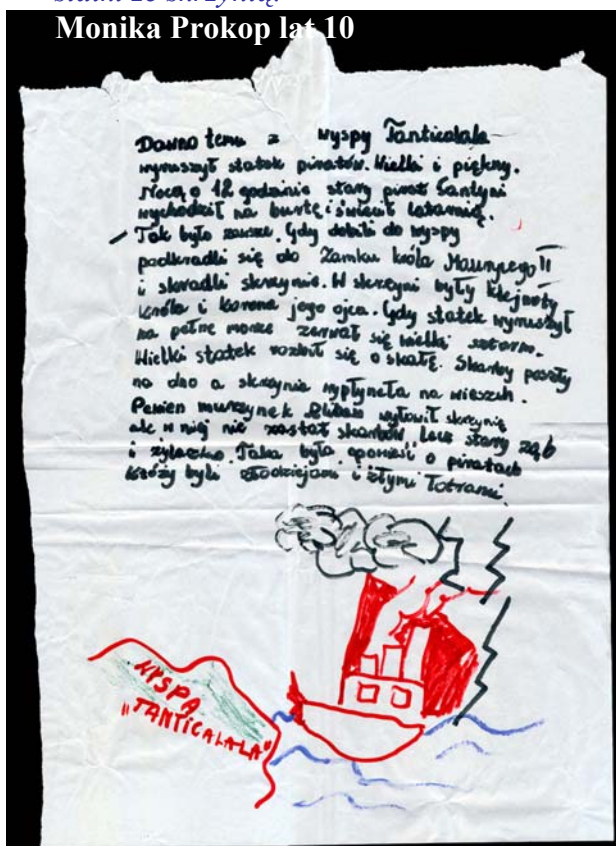 Monika Prokop lat 10
Dawno temu z wyspy Tanticalala
wyruszył statek piratów. Wielki i piękny.
Nocą o 12 godzinie stary pirat Santyni
wychodził na burtę i świecił latarnią.
Tak było zawsze. Gdy dobili do wyspy
podkradli się do Zamku króla II
i skradli skrzynie. W skrzyni były klejnoty
króla i korona jego ojca. Gdy statek wyruszył
na pełne morze zerwał się wielki sztorm.
Wielki statek rozbił się o skałę. Skarby poszły
na dno a skrzynia wypłyneła na wieszch.
Pewien murzynek wyłowił skrzynię
ale w niej nie zastał skarbów lecz stary ząb
i . Taka była opowieść o piratach
którzy byli złodziejami i złymi łotrami.
WYSPA
"TANTICALALA"